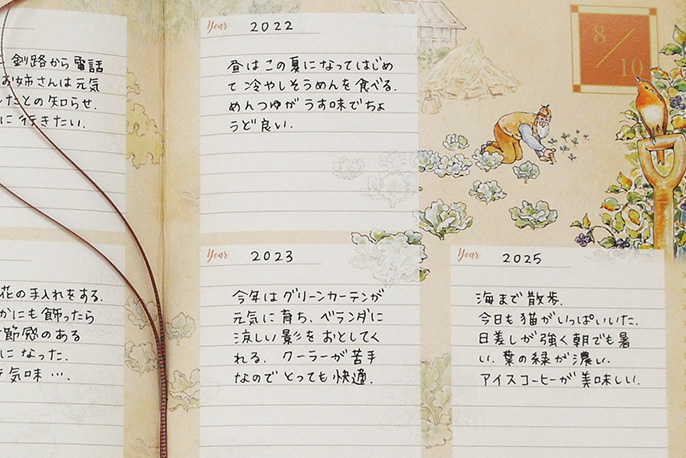 釧路から電話
お姉さんは元気
したとの知らせ.
に行きたい.
花の手入れをする.
かにも飾ったら
節感のある
になった.
元気味….
Year 2022
昼はこの夏になってはじめ
て冷やしそうめんを食べる.
めんつゆがうす味でちょ
うど良い.
Year 2023
今年はグリーンカーテンが
元気に育ち、ベランダに
涼しい影をおとしてく
れる. クーラーが苦手
なのでとっても快適.
8/10
Year 2025
海まで散歩.
今日も猫がいっぱいいた.
日差しが強く朝でも暑
い. 葉の緑が濃い.
アイスコーヒーが美味しい.